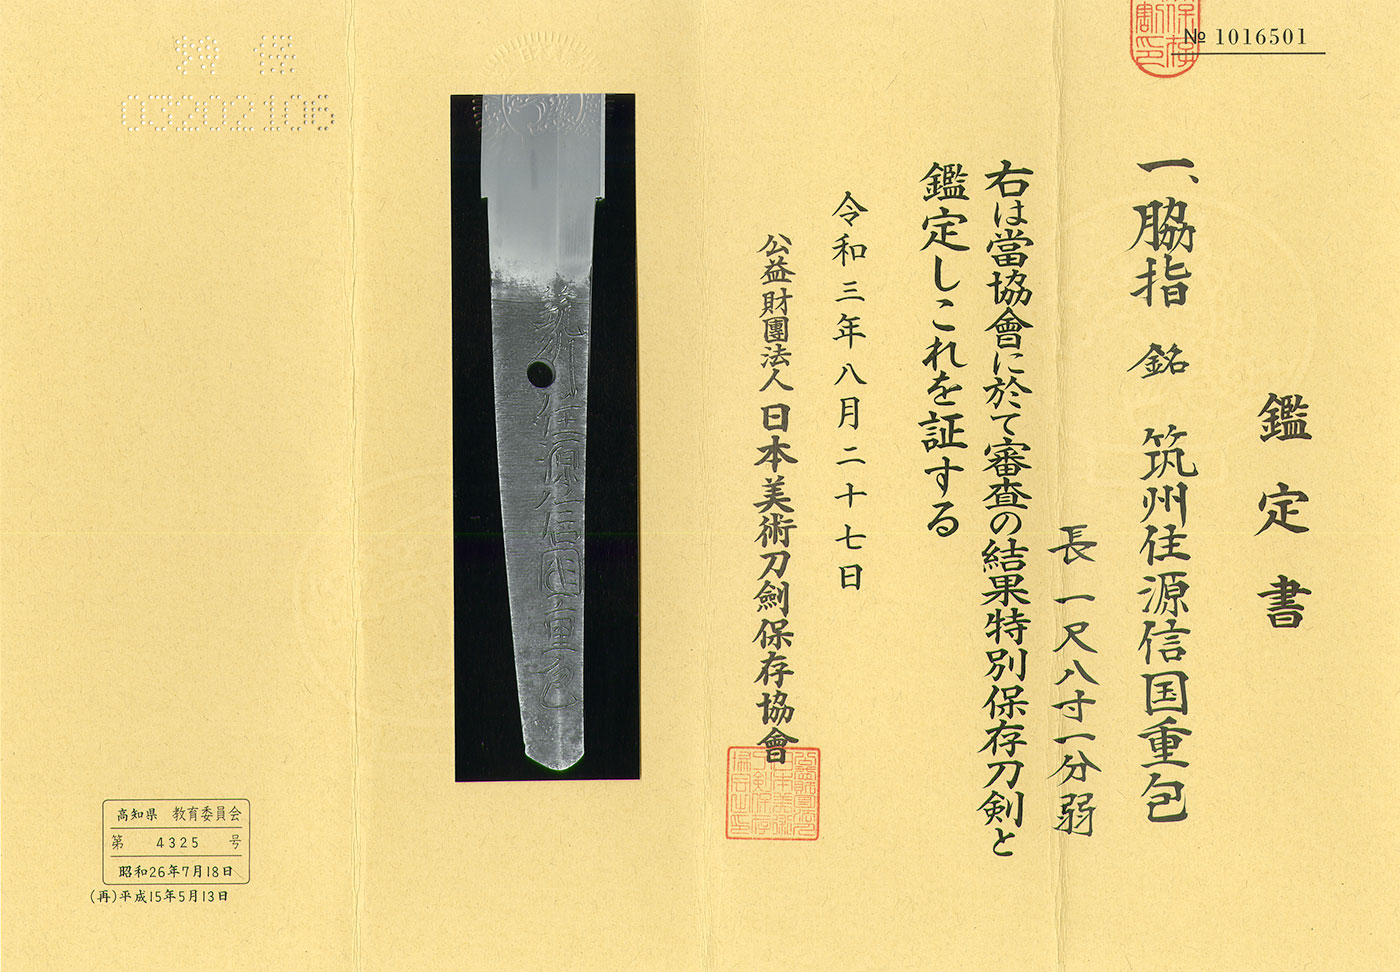 № 1016501
鑑定書
一、脇指 銘 筑州住源信国重包
長一尺八寸一分弱
右は當協會に於て審査の結果特別保存刀剣と
鑑定しこれを証する
令和三年八月二十七日
公益財團法人日本美術刀劍保存協會
筑州住源信国重包
03202106
高知県 教育委員会
第 4325 号
昭和26年7月18日
(再)平成15年5月13日